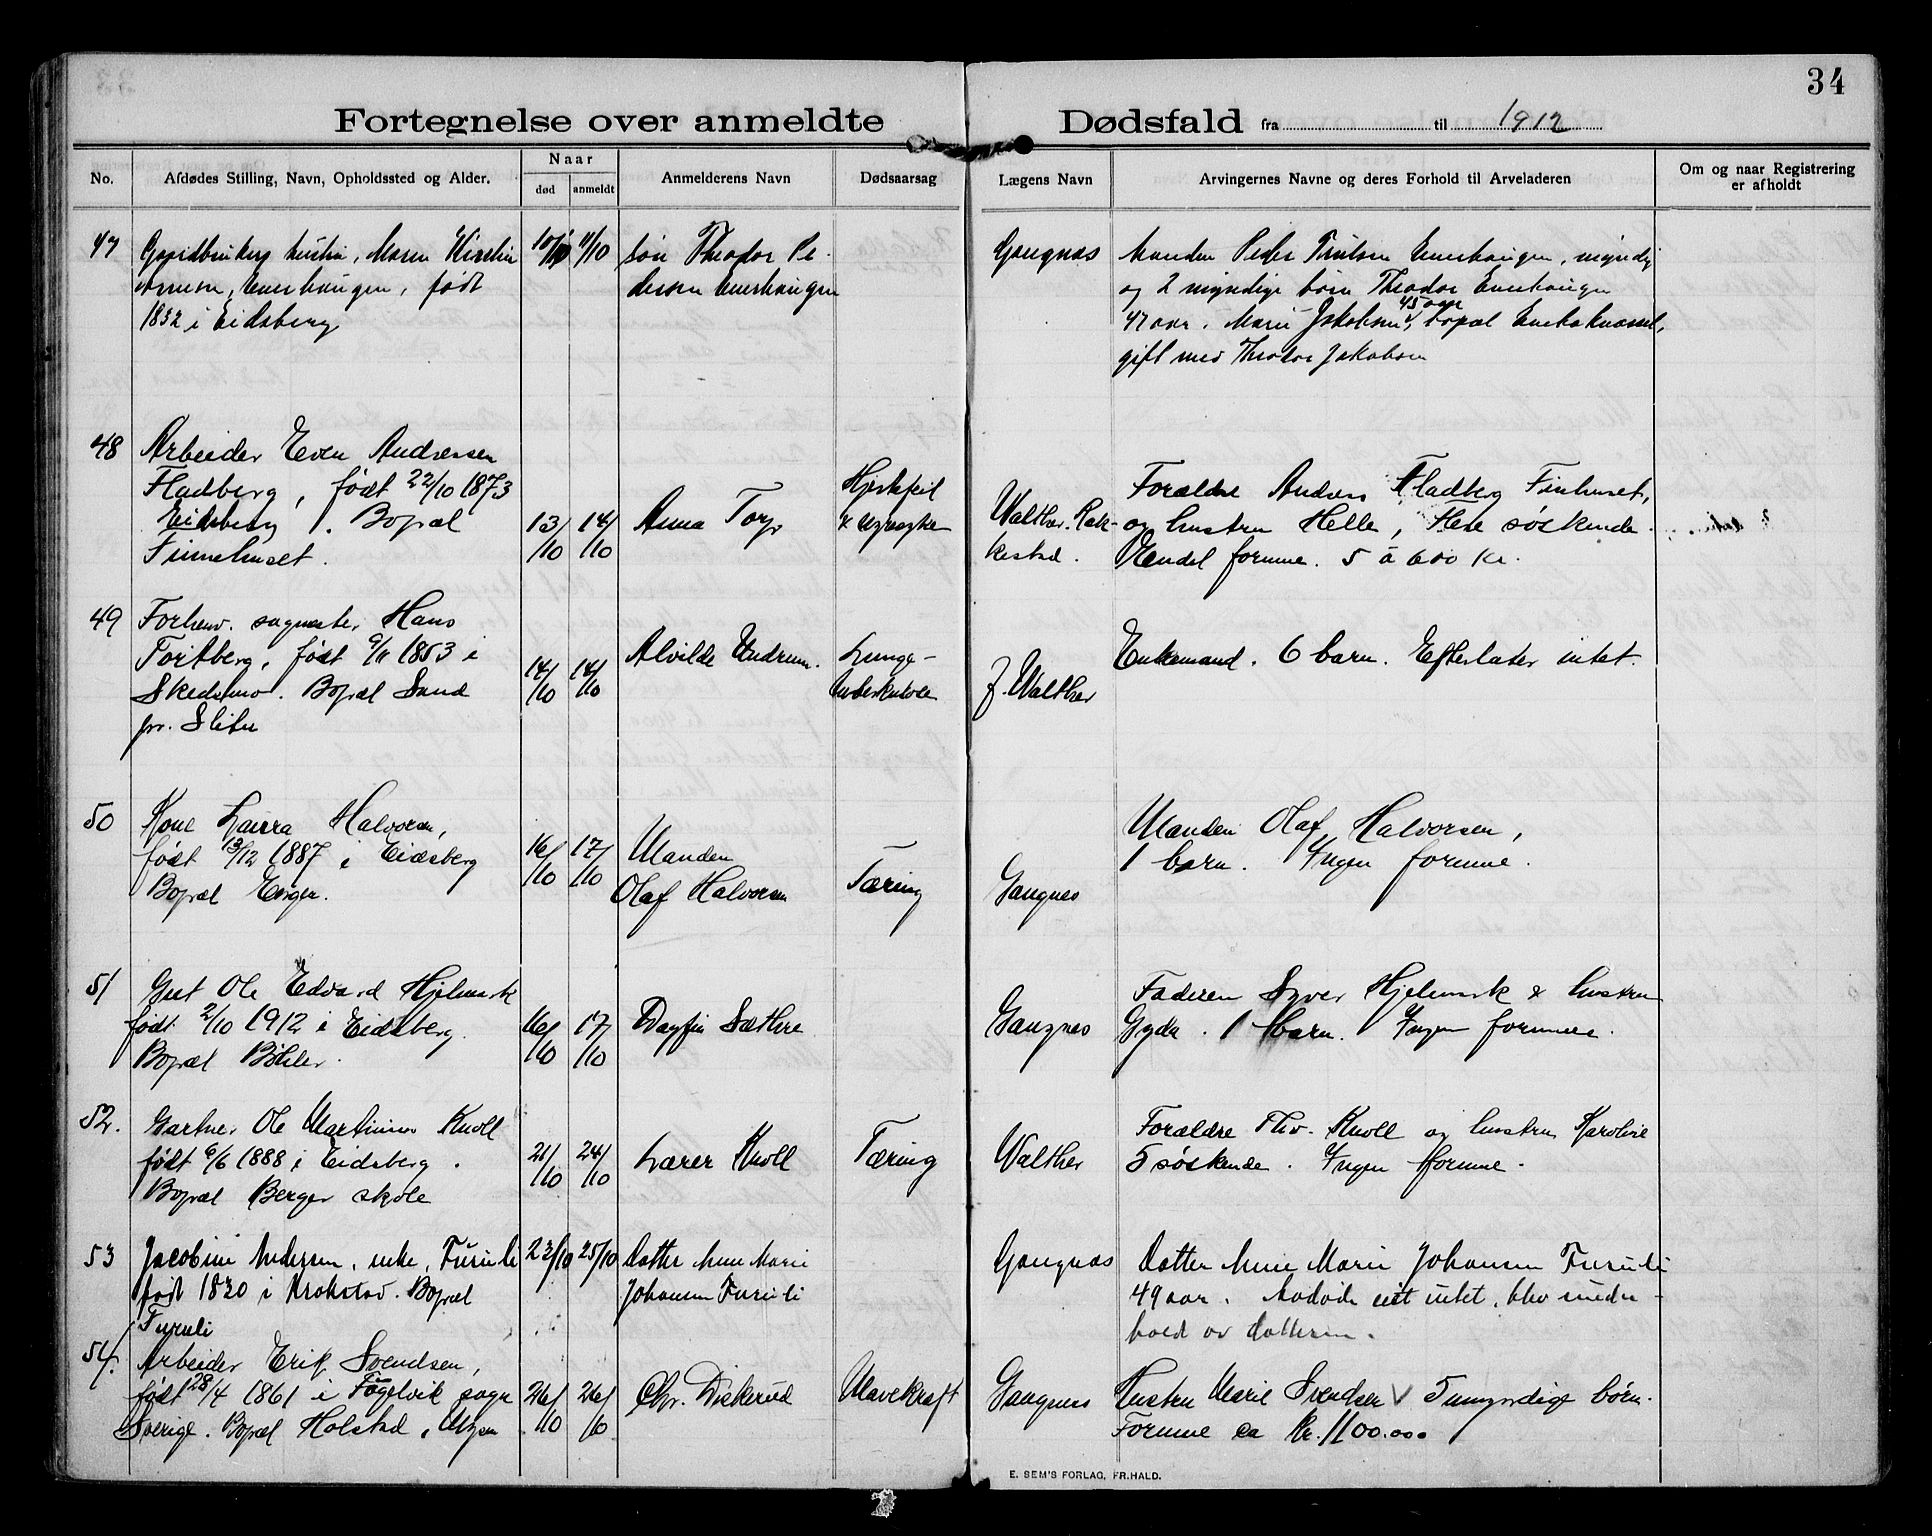 34
Fortegnelse over anmeldte Dødsfald fra til 1912
No.
Afdødes Stilling, Navn, Opholdssted og Alder.
Naar
død
anmeldt
Anmelderens Navn
Dødsaarsag
Lægens Navn
Arvingernes Navne og deres Forhold til Arveladeren
Om og naar Registrering
er afholdt
47
hustru, Maren Kirstin
født
1832 i Eidsberg
10/10
11/10
søn Theodor Pe-
dersen Enerhaugen
Gangnæs
Manden Peder Enerhaugen, myndig
og 2 myndige børn Theodor Enerhaugen
47 aar. Marie Jakobsen, 45 aar bopæl
gift med Theodor Jakobsen
48
Arbeider Even Andresen
Fladberg, født 22/10 1873
Eidsberg. Bopæl
Finnehuset.
13/10
14/10
Anna Torp
Hjertefeil
Walther. Rak-
kestad.
Forældre Anders Fladberg Finhuset,
og hustru Helle, flere søskende.
Hendel formue. 5 à 600 Kr.
49
Forhenv. sagmester Hans
Toritberg, født 9/11 1853 i
Skedsmo. Bopæl Sand
pr. Slitu
14/10
14/10
Alvilde Undrum.
Lunge-
tuberkulose
J. Walther
Enkemand. 6 barn. Efterlater intet.
50
Kone Laura Halvorsen,
født 13/12 1887 i Eidsberg
Bopæl Enger.
16/10
17/10
Manden
Olaf Halvorsen
Tæring
Gangnes
Manden Olaf Halvorsen,
1 barn. Ingen formue.
51
Gut Ole Edvard Hjelmark
født 2/10 1912 i Eidsberg.
Bopæl Bøhler.
16/10
17/10
Dagfin Sæthre
Gangnes
Faderen Syver Hjelmark & hustru
Gyda. 1 barn. Ingen formue.
52.
Gartner Ole Martinius Knoll
født 6/6 1888 i Eidsberg.
Bopæl Berger skole
21/10
24/10
Lærer Knoll
Tæring
Walther
Forældre Thv. Knoll og hustru Karoline
5 søskende. Ingen formue.
53
Jacobine Andersen, enke, Furuli
født 1830 i Krokstad. Bopæl
Furuli
23/10
25/10
Datter Anne Marie
Johansen Furuli
Gangnæs
Datter Anne Marie Johansen Furuli
49 aar. Avdøde eiet intet, blev under-
hold av datteren.
54.
Arbeider Erik Svendsen,
født 28/4 1861 i Fögelvik sogn
Sverige. Bopæl Holstad, Mysen
26/10
26/10
Chr. Diskerud
Mavekræft
Gangnes
Hustru Marie Svendsen 5 umyndige børn.
Formue ca Kr. 1100.00.
E. SEM'S FORLAG, FR.HALD.